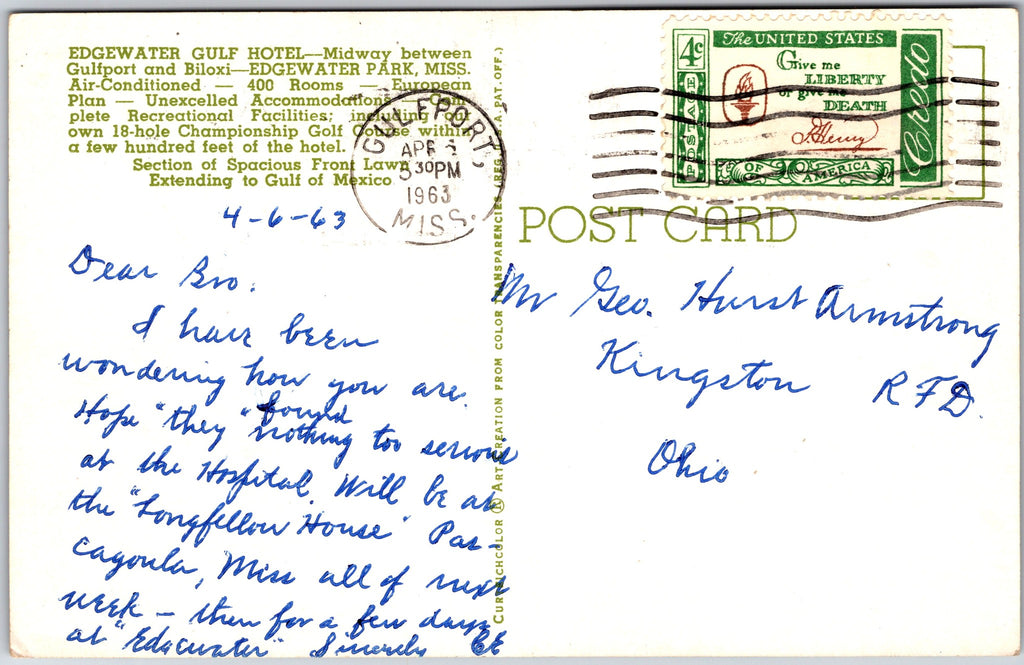 EDGEWATER GULF HOTEL—Midway between
Gulfport and Biloxi—EDGEWATER PARK, MISS.
Air-Conditioned — 400 Rooms — European
Plan — Unexcelled Accommodations — Com-
plete Recreational Facilities; including
own 18-hole Championship Golf Course within
a few hundred feet of the hotel.
Section of Spacious Front Lawn
Extending to Gulf of Mexico
GULFPORT,
APR
5 30PM
1963
MISS.
4-6-63
Dear Bro.
I have been
wondering how you are.
Hope "they" found
nothing too serious
at the Hospital. Will be at
the "Longfellow House" Pas-
cagoula, Miss all of next
week — then for a few days
at "Edgewater" Sincerely CE
CURTEICHCOLOR ® ART-CREATION FROM COLOR TRANSPARENCIES (REG. U.S.A. PAT. OFF.)
4c
POSTAGE
The UNITED STATES
Give me
LIBERTY
or give me
DEATH
P. Henry
OF AMERICA
Credo
POST CARD
Mr Geo. Hurst Armstrong
Kingston RFD.
Ohio